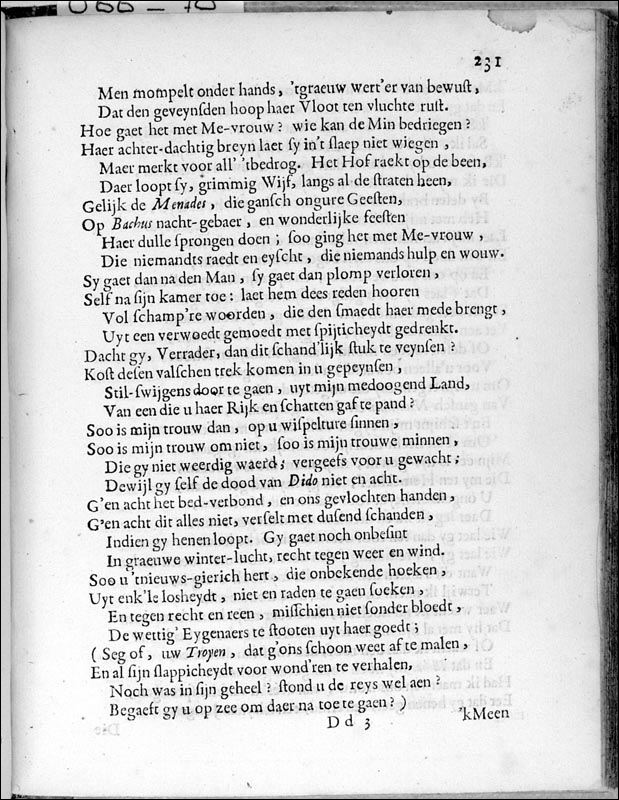 066 – 70
231
Men mompelt onder hands, 'tgraeuw wert'er van bewust,
Dat den geveynsden hoop haer Vloot ten vluchte rust.
Hoe gaet het met Me-vrouw? wie kan de Min bedriegen?
Haer achter-dachtig breyn laet sy in't slaep niet wiegen,
Maer merkt voor all' 'tbedrog. Het Hof raekt op de been,
Daer loopt sy, grimmig Wijf, langs al de straten heen,
Gelijk de Menades, die gansch ongure Geesten,
Op Bachus nacht-gebaer, en wonderlijke feesten
Haer dulle sprongen doen; soo ging het met Me-vrouw,
Die niemandts raedt en eyscht, die niemands hulp en wouw.
Sy gaet dan na den Man, sy gaet dan plomp verloren,
Self na sijn kamer toe: laet hem dees reden hooren
Vol schamp're woorden, die den smaedt haer mede brengt,
Uyt een verwoedt gemoedt met spijticheydt gedrenkt.
Dacht gy, Verrader, dan dit schand'lijk stuk te veynsen?
Kost desen valschen trek komen in u gepeynsen,
Stil-swijgens door te gaen, uyt mijn medoogend Land,
Van een die u haer Rijk en schatten gaf te pand?
Soo is mijn trouw dan, op u wispelture sinnen,
Soo is mijn trouw om niet, soo is mijn trouwe minnen,
Die gy niet weerdig waerd; vergeefs voor u gewacht;
Dewijl gy self de dood van Dido niet en acht.
G'en acht het bed-verbond, en ons gevlochten handen,
G'en acht dit alles niet, verselt met dusend schanden,
Indien gy henen loopt. Gy gaet noch onbesint
In graeuwe winter-lucht, recht tegen weer en wind.
Soo u 'tnieuws-gierich hert, die onbekende hoeken,
Uyt enk'le losheydt, niet en raden te gaen soeken,
En tegen recht en reen, misschien niet sonder bloedt,
De wettig' Eygenaers te stooten uyt haer goedt;
( Seg of, uw Troyen, dat g'ons schoon weet af te malen,
En al sijn slappicheydt voor wond'ren te verhalen,
Noch was in sijn geheel? stond u de reys wel aen?
Begaeft gy u op zee om daer na toe te gaen? )
D d 3
'kMeen